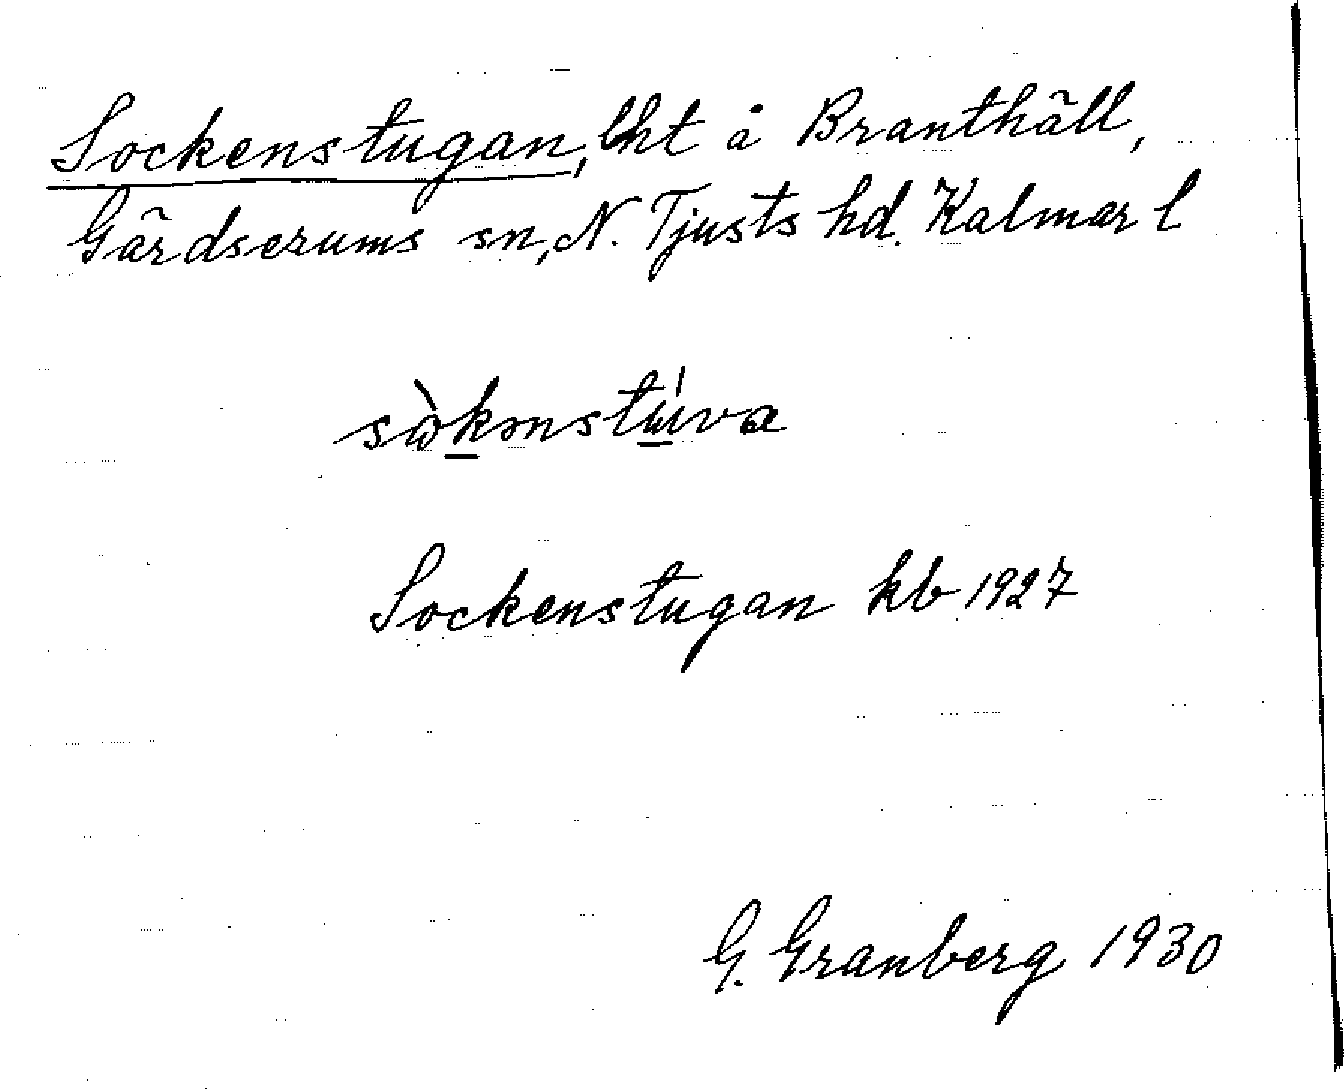 Sockenstugan, lht å Branthäll,
Gärdserums sn, N. Tjusts hd. Kalmar l
Sockenstugan kb 1927
G. Granberg 1930